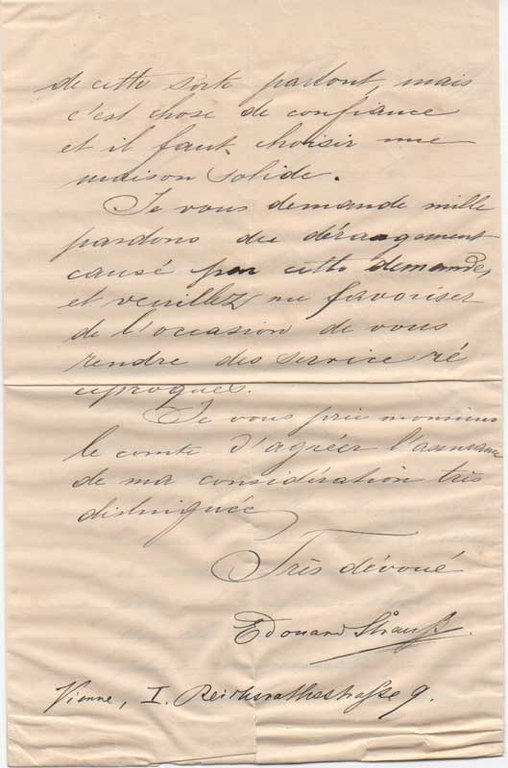 de cette sorte partout, mais
c'est chose de confiance
et il faut choisir une
maison solide.
Je vous demande mille
pardons du dérangement
causé par cette demande,
et veuillez me favoriser
de l'occasion de vous
rendre des service ré
ciproques.
Je vous prie monsieur
le comte d'agréer l'assurance
de ma considération très
distinguée
Très dévoué
Edouard Strauß
Vienne, I. Reichsrathsstraße 9.